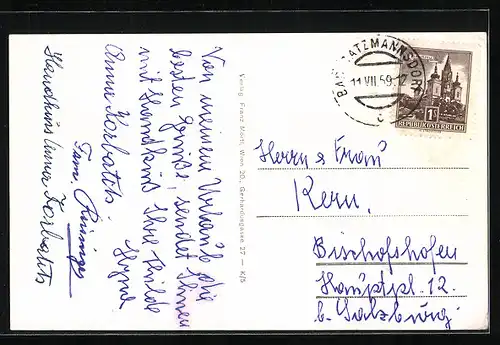 Von meinem Urlaub die
besten Grüße, sendet Ihnen
mit Handkuß Ihre Hilde
Anna Korbatch.
Fam.
Handkuss Korbatits
Verlag Franz Mörtl, Wien 20., Gerhardusgasse 27 — K/5
BAD TATZMANNSDORF
11.VII.59.12
1S
REPUBLIK ÖSTERREICH
Herrn u. Frau
Kern,
Bischofshofen
Hauptpl. 12.
b. Salzburg.